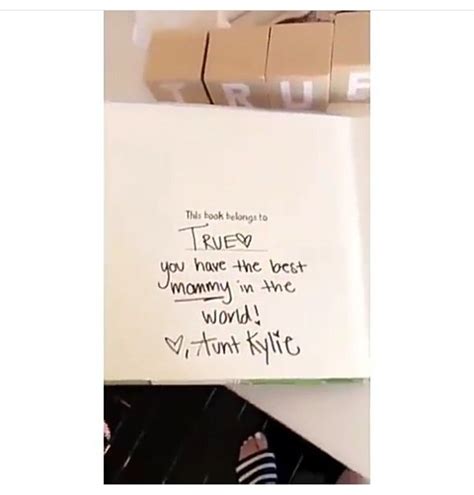 TRUE
This book belongs to
TRUE♡
you have the best
mommy in the
world!
♡, Aunt Kylie